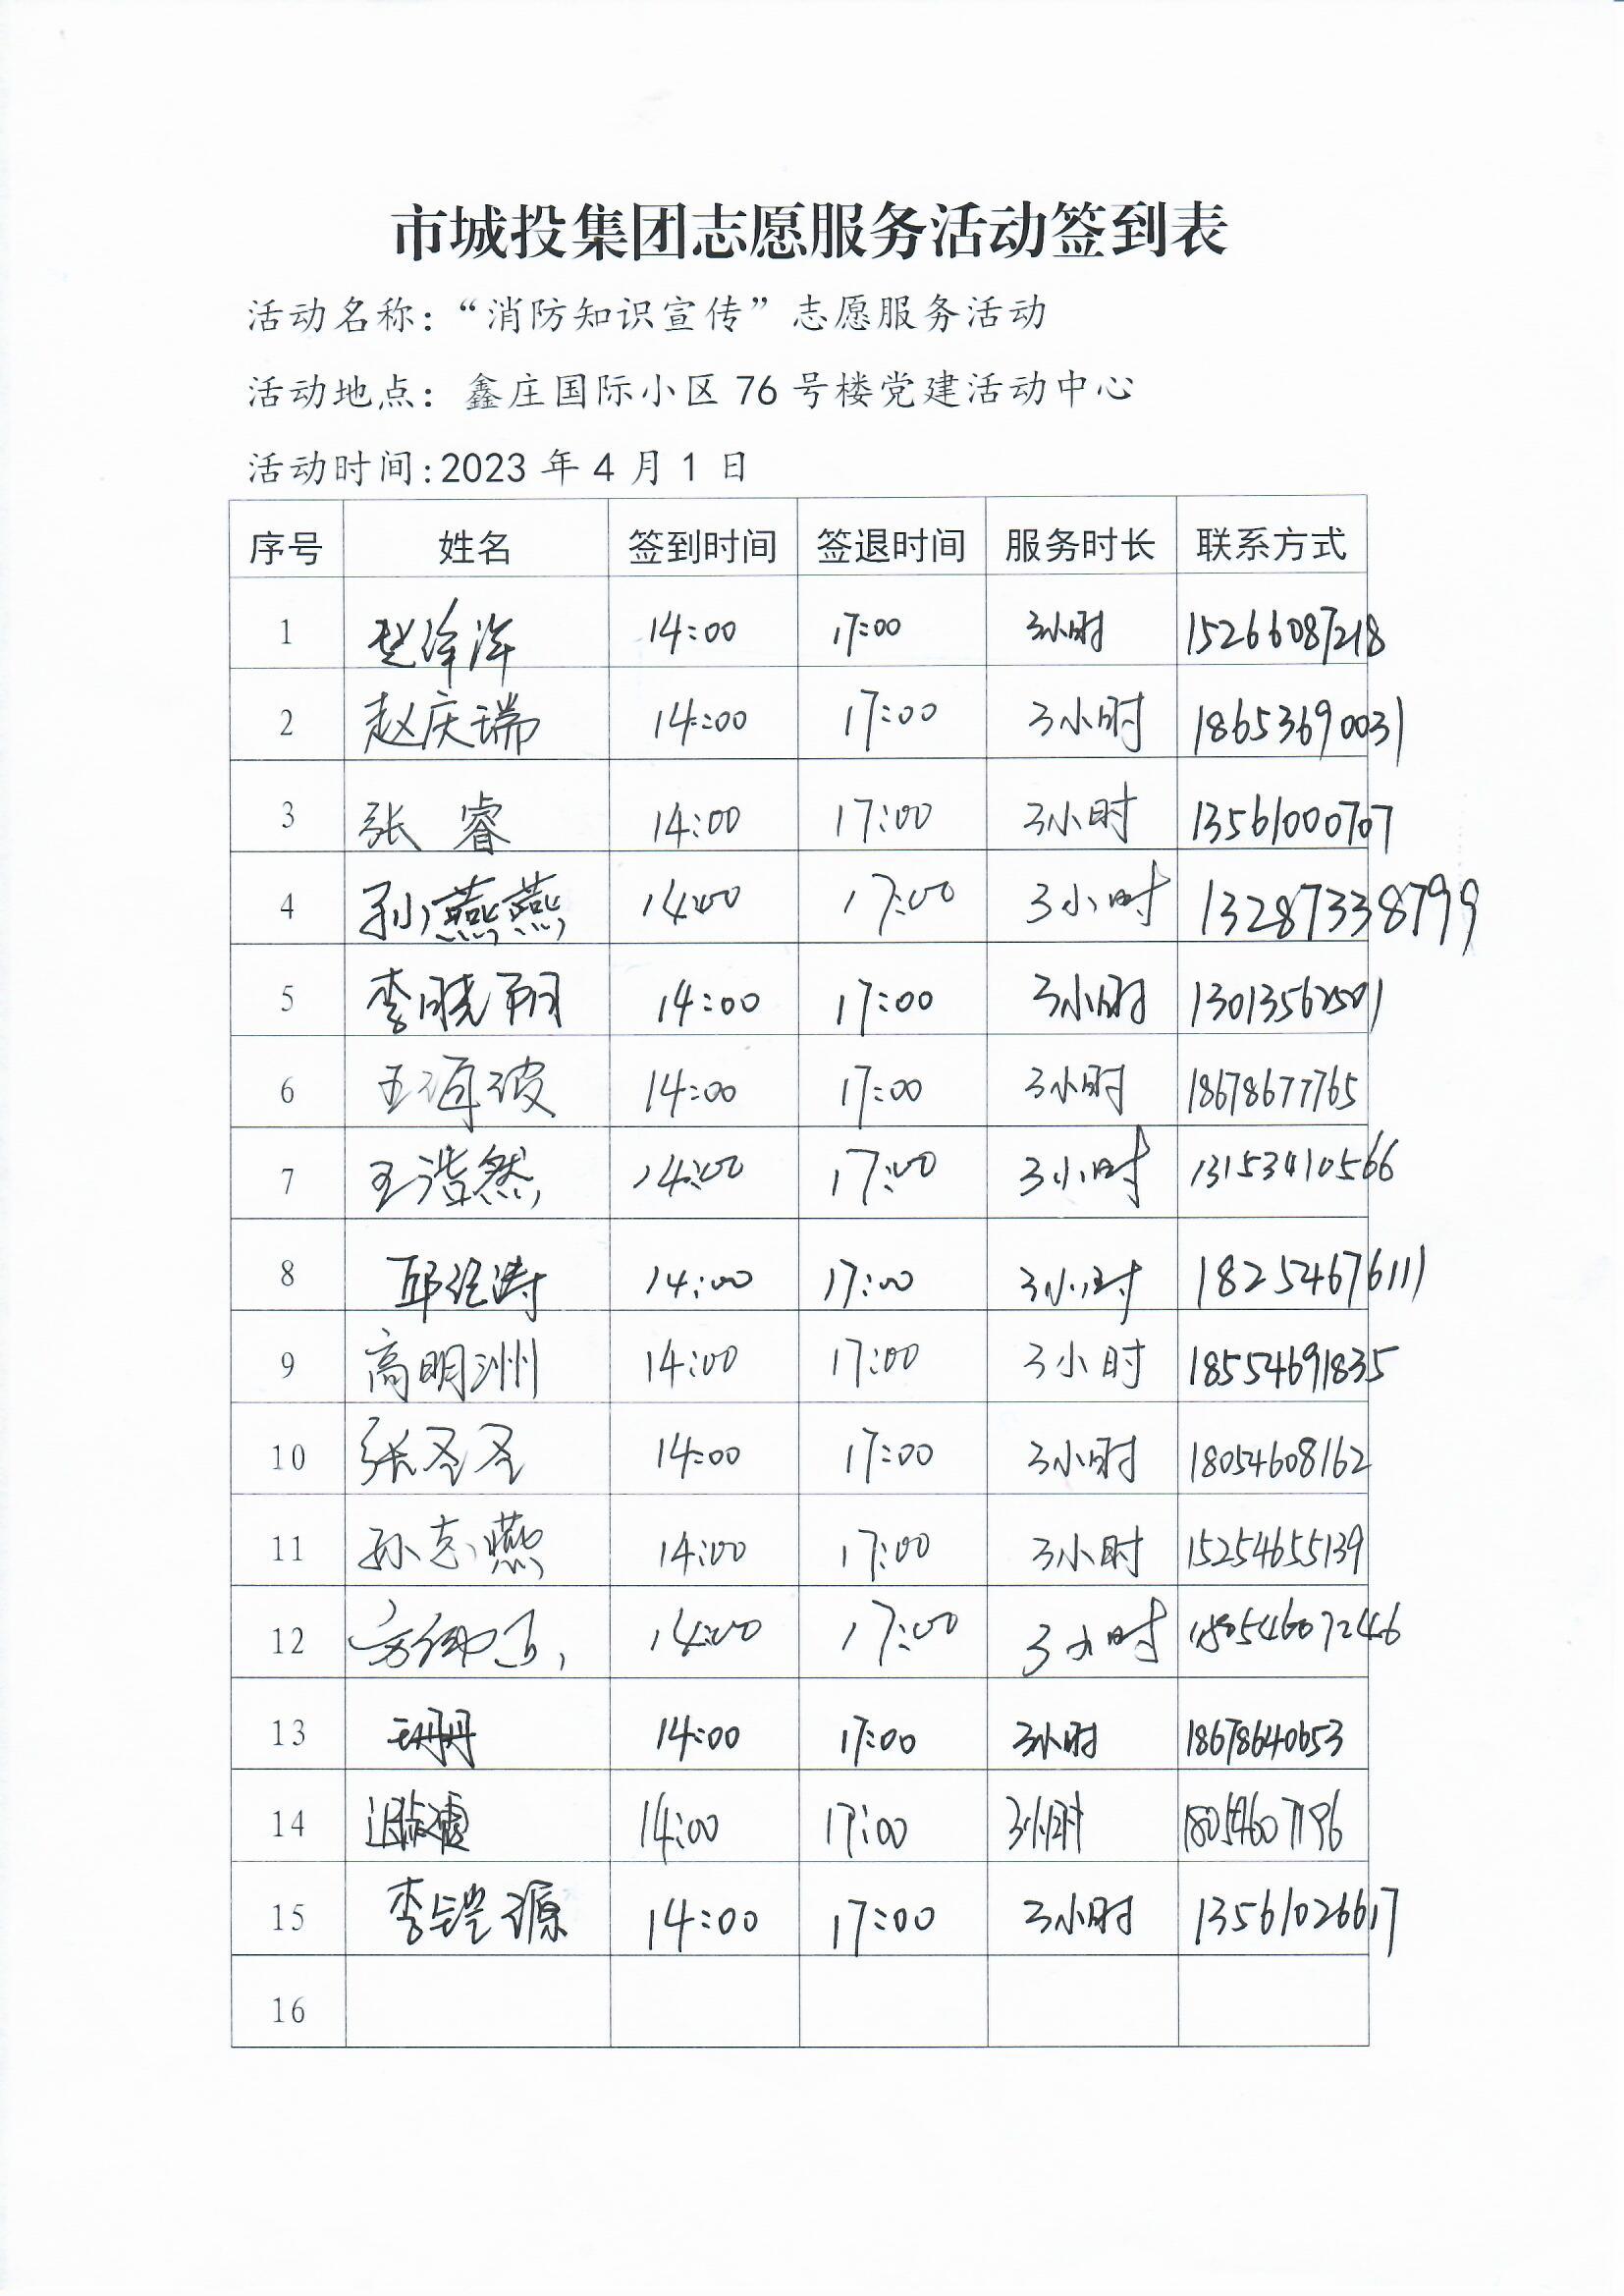 市城投集团志愿服务活动签到表
活动名称：“消防知识宣传”志愿服务活动
活动地点：鑫庄国际小区 76 号楼党建活动中心
活动时间:2023 年 4 月 1 日
序号 姓名 签到时间 签退时间 服务时长 联系方式
1 14:00 17:00 3小时 15266087218
2 赵庆瑞 14:00 17:00 3小时 18653690031
3 张睿 14:00 17:00 3小时 13561000707
4 孙燕燕 14:00 17:00 3小时 13287338799
5 李晓明 14:00 17:00 3小时
6 14:00 17:00 3小时 18678677765
7 王浩然 14:00 17:00 3小时 13153410566
8 14:00 17:00 3小时 18254676111
9 高明洲 14:00 17:00 3小时 18554691835
10 张圣圣 14:00 17:00 3小时 18054608162
11 孙志燕 14:00 17:00 3小时 15254655139
12 14:00 17:00 3小时 18054607246
13 14:00 17:00 3小时 18678640653
14 14:00 17:00 3小时 18054607196
15 李锴源 14:00 17:00 3小时 13561026617
16